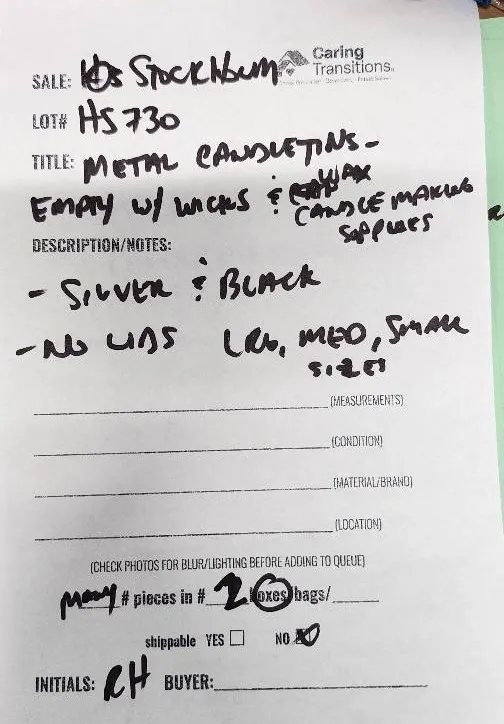 SALE: Stockhbum Caring
Transitions
LOT# HS730
TITLE: METAL CANDLETINS -
EMPTY W/ WICKS & WAX
CANDLE MAKING
SUPPLIES
DESCRIPTION/NOTES:
- SILVER & BLACK
- NO LIDS LRG, MED, SMALL
SIZES
(MEASUREMENTS)
(CONDITION)
(MATERIAL/BRAND)
(LOCATION)
(CHECK PHOTOS FOR BLUR/LIGHTING BEFORE ADDING TO QUEUE)
many # pieces in # 2 boxes/bags/
shippable YES NO
INITIALS: RH BUYER: